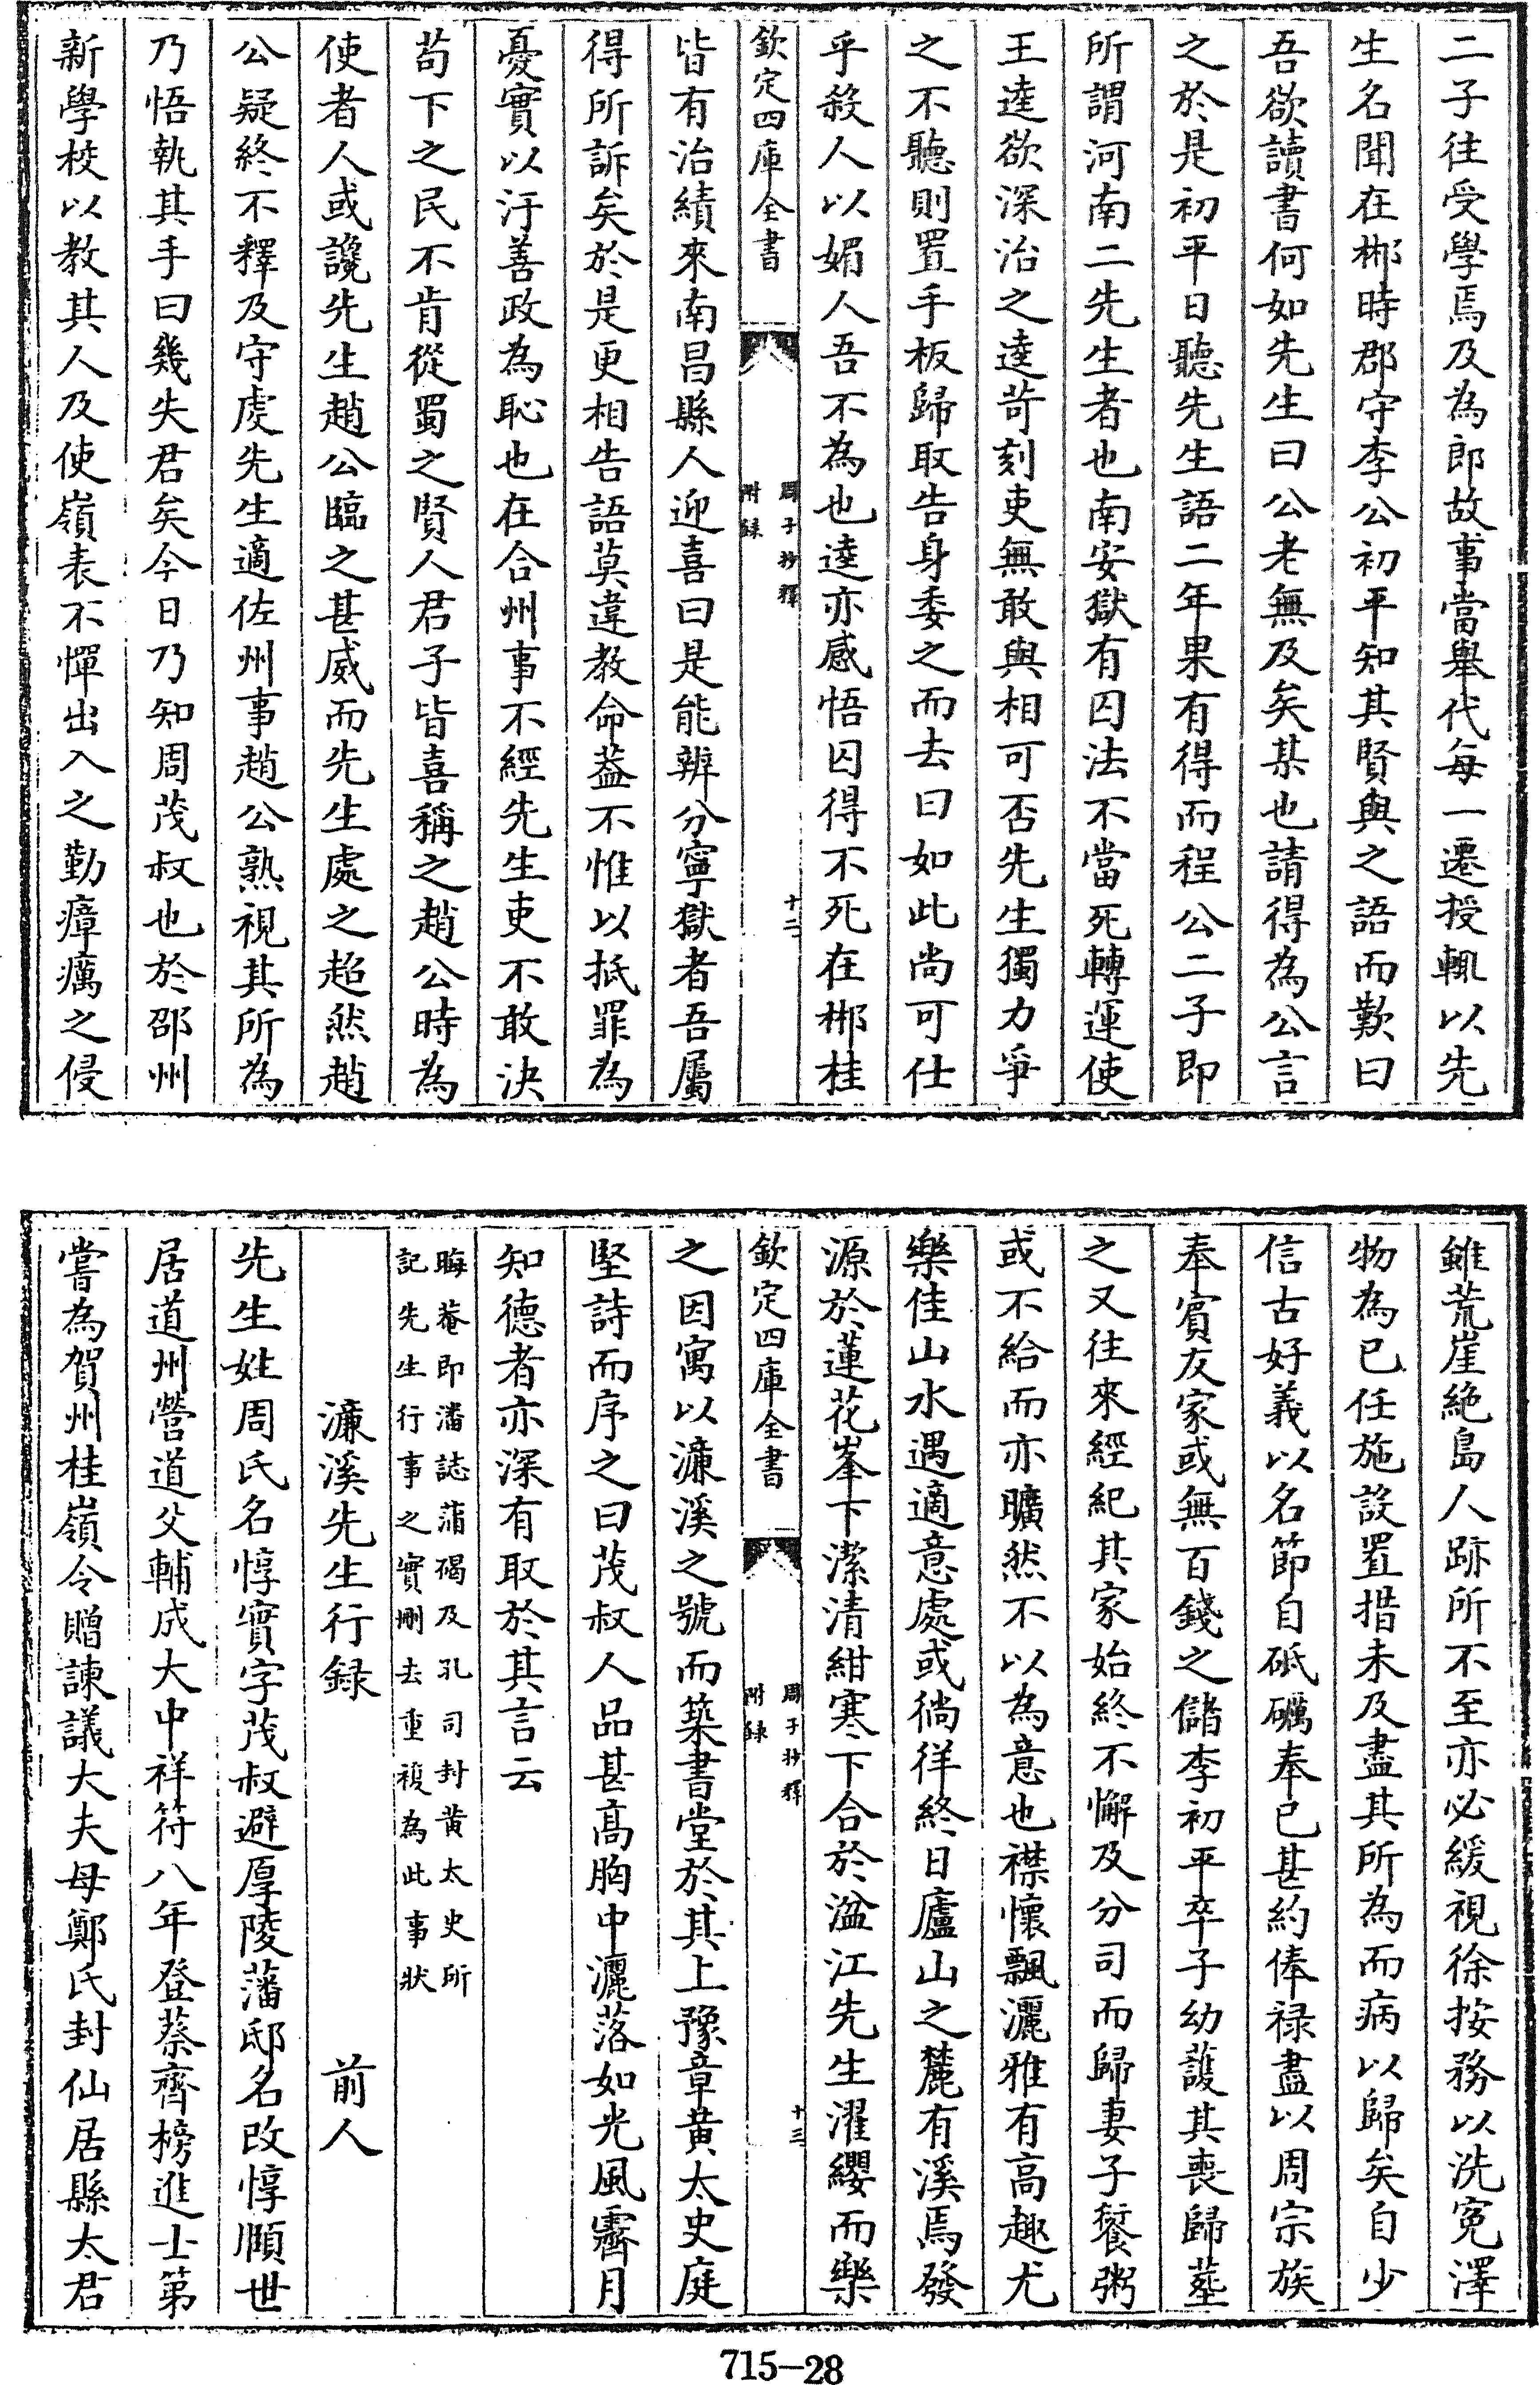 二子往受學焉及為郎故事當舉代每一遷授輒以先
生名聞在郴時郡守李公初平知其賢與之語而歎曰
吾欲讀書何如先生曰公老無及矣某也請得為公言
之於是初平日聽先生語二年果有得而程公二子即
所謂河南二先生者也南安獄有囚法不當死轉運使
王逵欲深治之逵苛刻吏無敢與相可否先生獨力爭
之不聽則置手板歸取告身委之而去曰如此尚可仕
乎殺人以媚人吾不為也逵亦感悟囚得不死在郴桂
欽定四庫全書
周子抄釋
附録
十二
皆有治績來南昌縣人迎喜曰是能辨分寧獄者吾屬
得所訴矣於是更相告語莫違教命葢不惟以抵罪為
憂實以汙善政為恥也在合州事不經先生吏不敢決
苟下之民不肯從蜀之賢人君子皆喜稱之趙公時為
使者人或讒先生趙公臨之甚威而先生處之超然趙
公疑終不釋及守虔先生適佐州事趙公熟視其所為
乃悟執其手曰幾失君矣今日乃知周茂叔也於邵州
新學校以教其人及使嶺表不憚出入之勤瘴癘之侵
雖荒崖絶島人跡所不至亦必緩視徐按務以洗寃澤
物為已任施設置措未及盡其所為而病以歸矣自少
信古好義以名節自砥礪奉已甚約俸禄盡以周宗族
奉賓友家或無百錢之儲李初平卒子幼護其喪歸塟
之又往來經紀其家始終不懈及分司而歸妻子饘粥
或不給而亦曠然不以為意也襟懷飄灑雅有高趣尤
樂佳山水遇適意處或徜徉終日廬山之麓有溪焉發
源於蓮花峯下潔清紺寒下合於湓江先生濯纓而樂
欽定四庫全書
周子抄釋
附録
十三
之因寓以濓溪之號而築書堂於其上豫章黄太史庭
堅詩而序之曰茂叔人品甚髙胸中灑落如光風霽月
知德者亦深有取於其言云
晦菴即潘誌蒲碣及孔司封黄太史所
記先生行事之實刪去重複為此事狀
濂溪先生行録 前人
先生姓周氏名惇實字茂叔避厚陵藩邸名改惇頤世
居道州營道父輔成大中祥符八年登蔡齊榜進士第
嘗為賀州桂嶺令贈諫議大夫母鄭氏封仙居縣太君
715-28